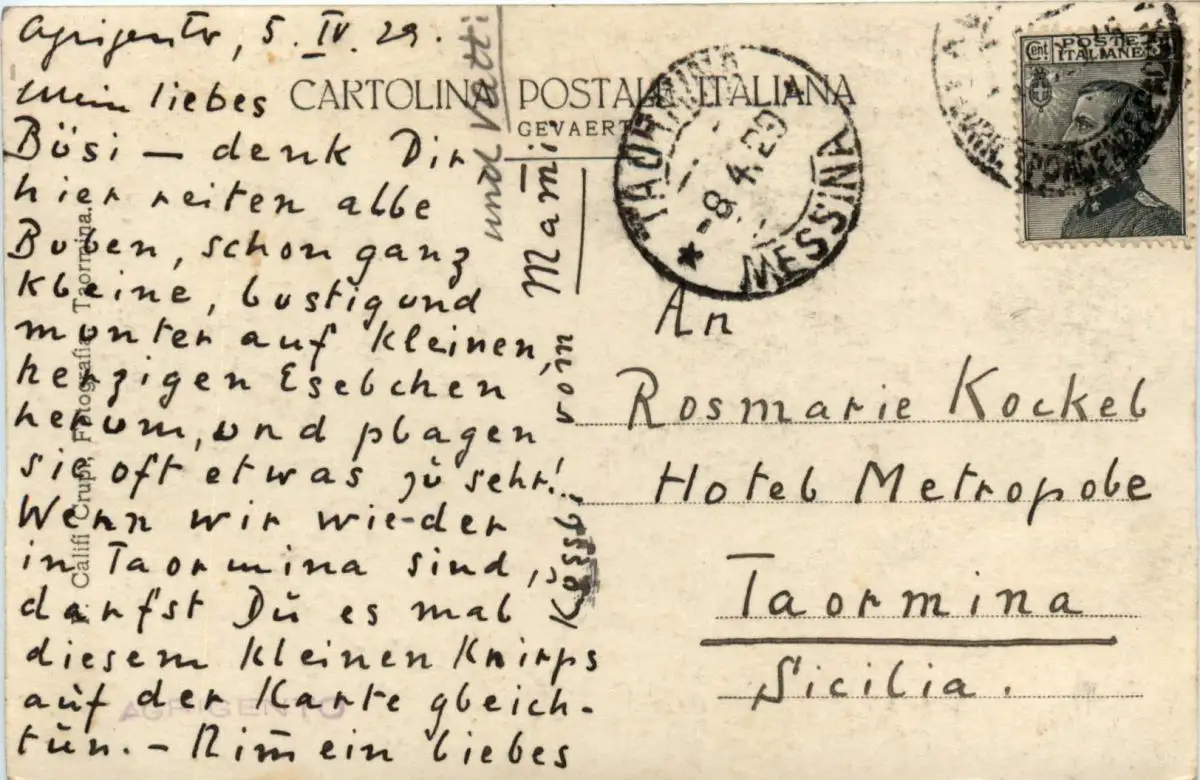 Agrigento, 5. IV. 29.
Mein liebes
Bösi – denk Dir
hier reiten alle
Buben, schon ganz
kleine, lustig und
munter auf kleinen,
herzigen Eselchen
herum, und plagen
sie oft etwas zu sehr!
Wenn wir wie-der
in Taormina sind,
darfst Du es mal
diesem kleinen Knirps
auf der Karte gleich-
tun. – Nim̄ ein liebes
Küssl vom
Mami
und Vatti
CARTOLINA POSTALE ITALIANA
GEVAERT
Califi Crupi, Fotografia, Taormina.
AGRIGENTO
TAORMINA
-8.4.29
MESSINA
Cent. POSTE
ITALIANE
An
Rosmarie Kockel
Hotel Metropole
Taormina
Sicilia.